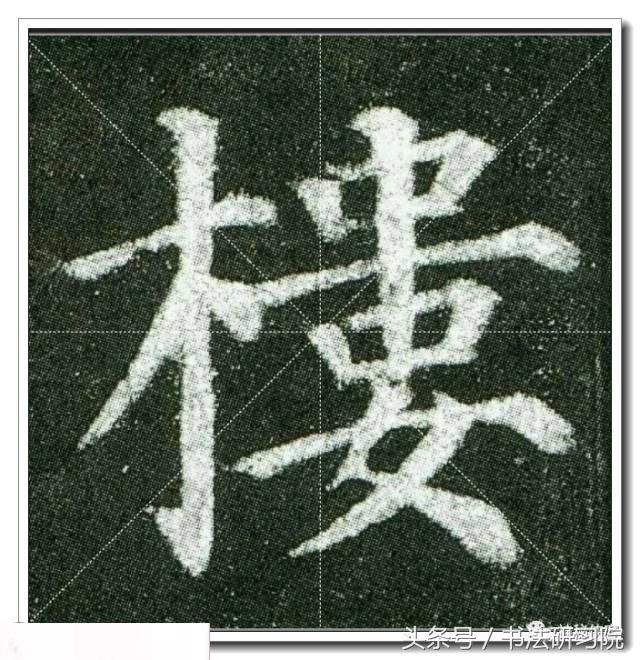 樓
头条号 / 书法研习院